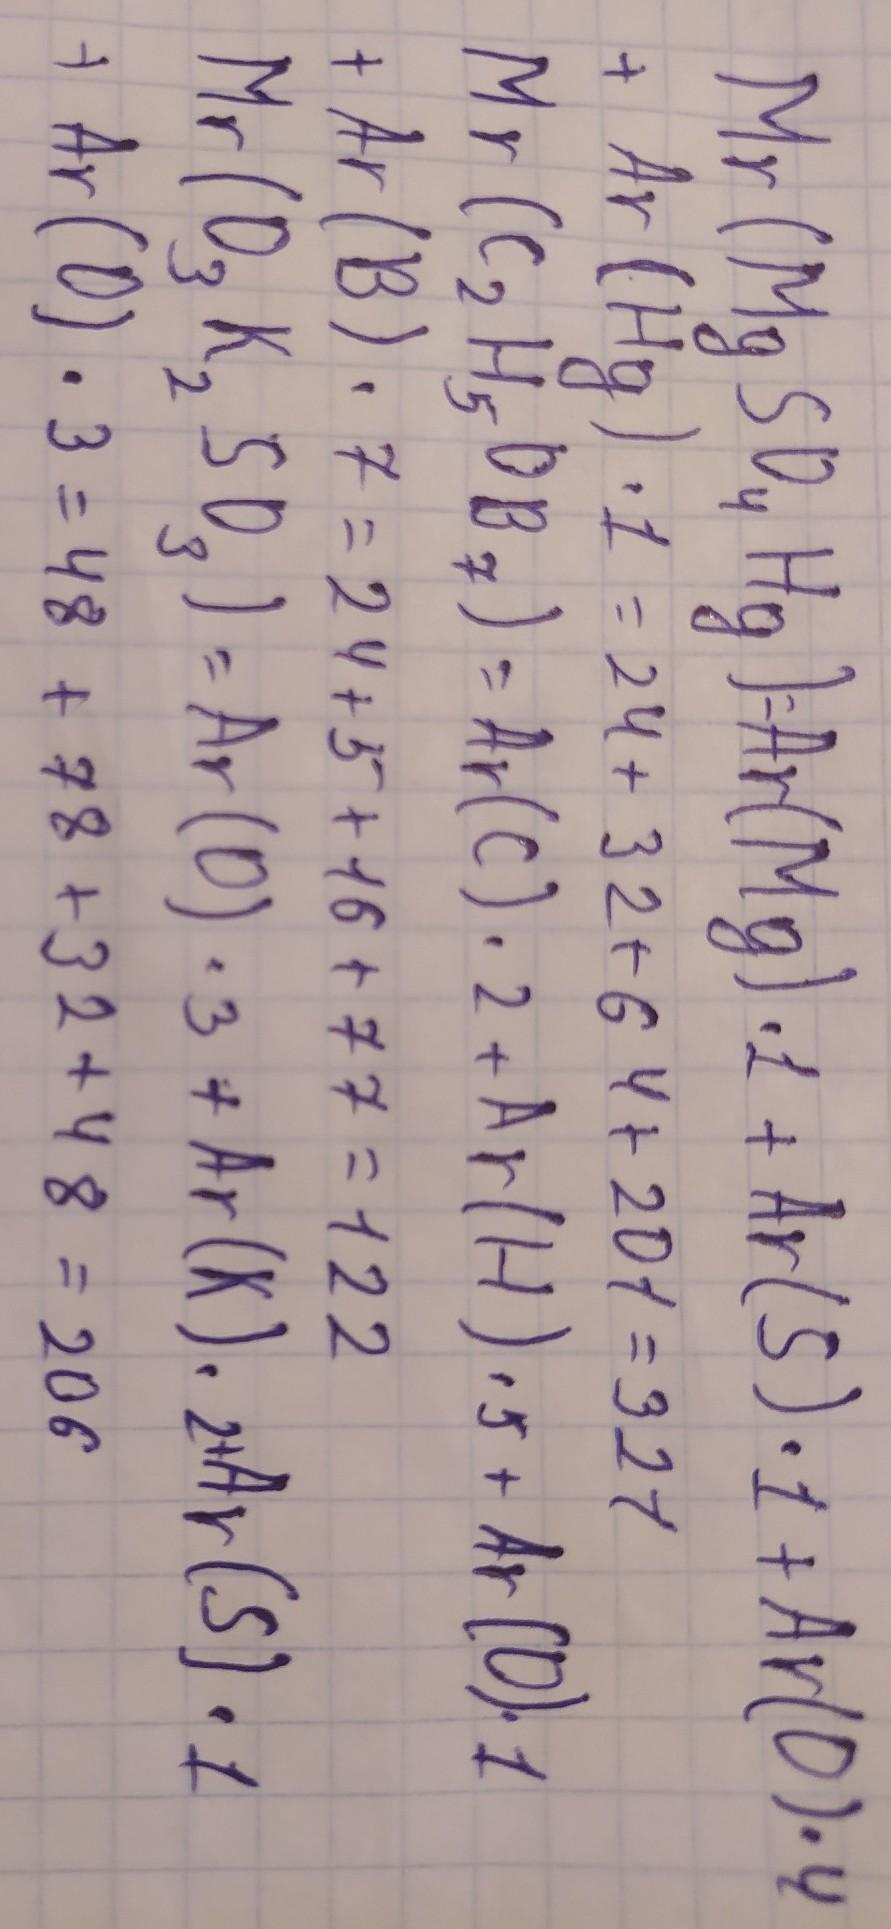 Mr(MgSO₄Hg)=Ar(Mg)·1+Ar(S)·1+Ar(O)·4
+Ar(Hg)·1=24+32+64+201=321
Mr(C₂H₅OB₇)=Ar(C)·2+Ar(H)·5+Ar(O)·1
+Ar(B)·7=24+5+16+77=122
Mr(O₃K₂SO₃)=Ar(O)·3+Ar(K)·2+Ar(S)·1
+Ar(O)·3=48+78+32+48=206